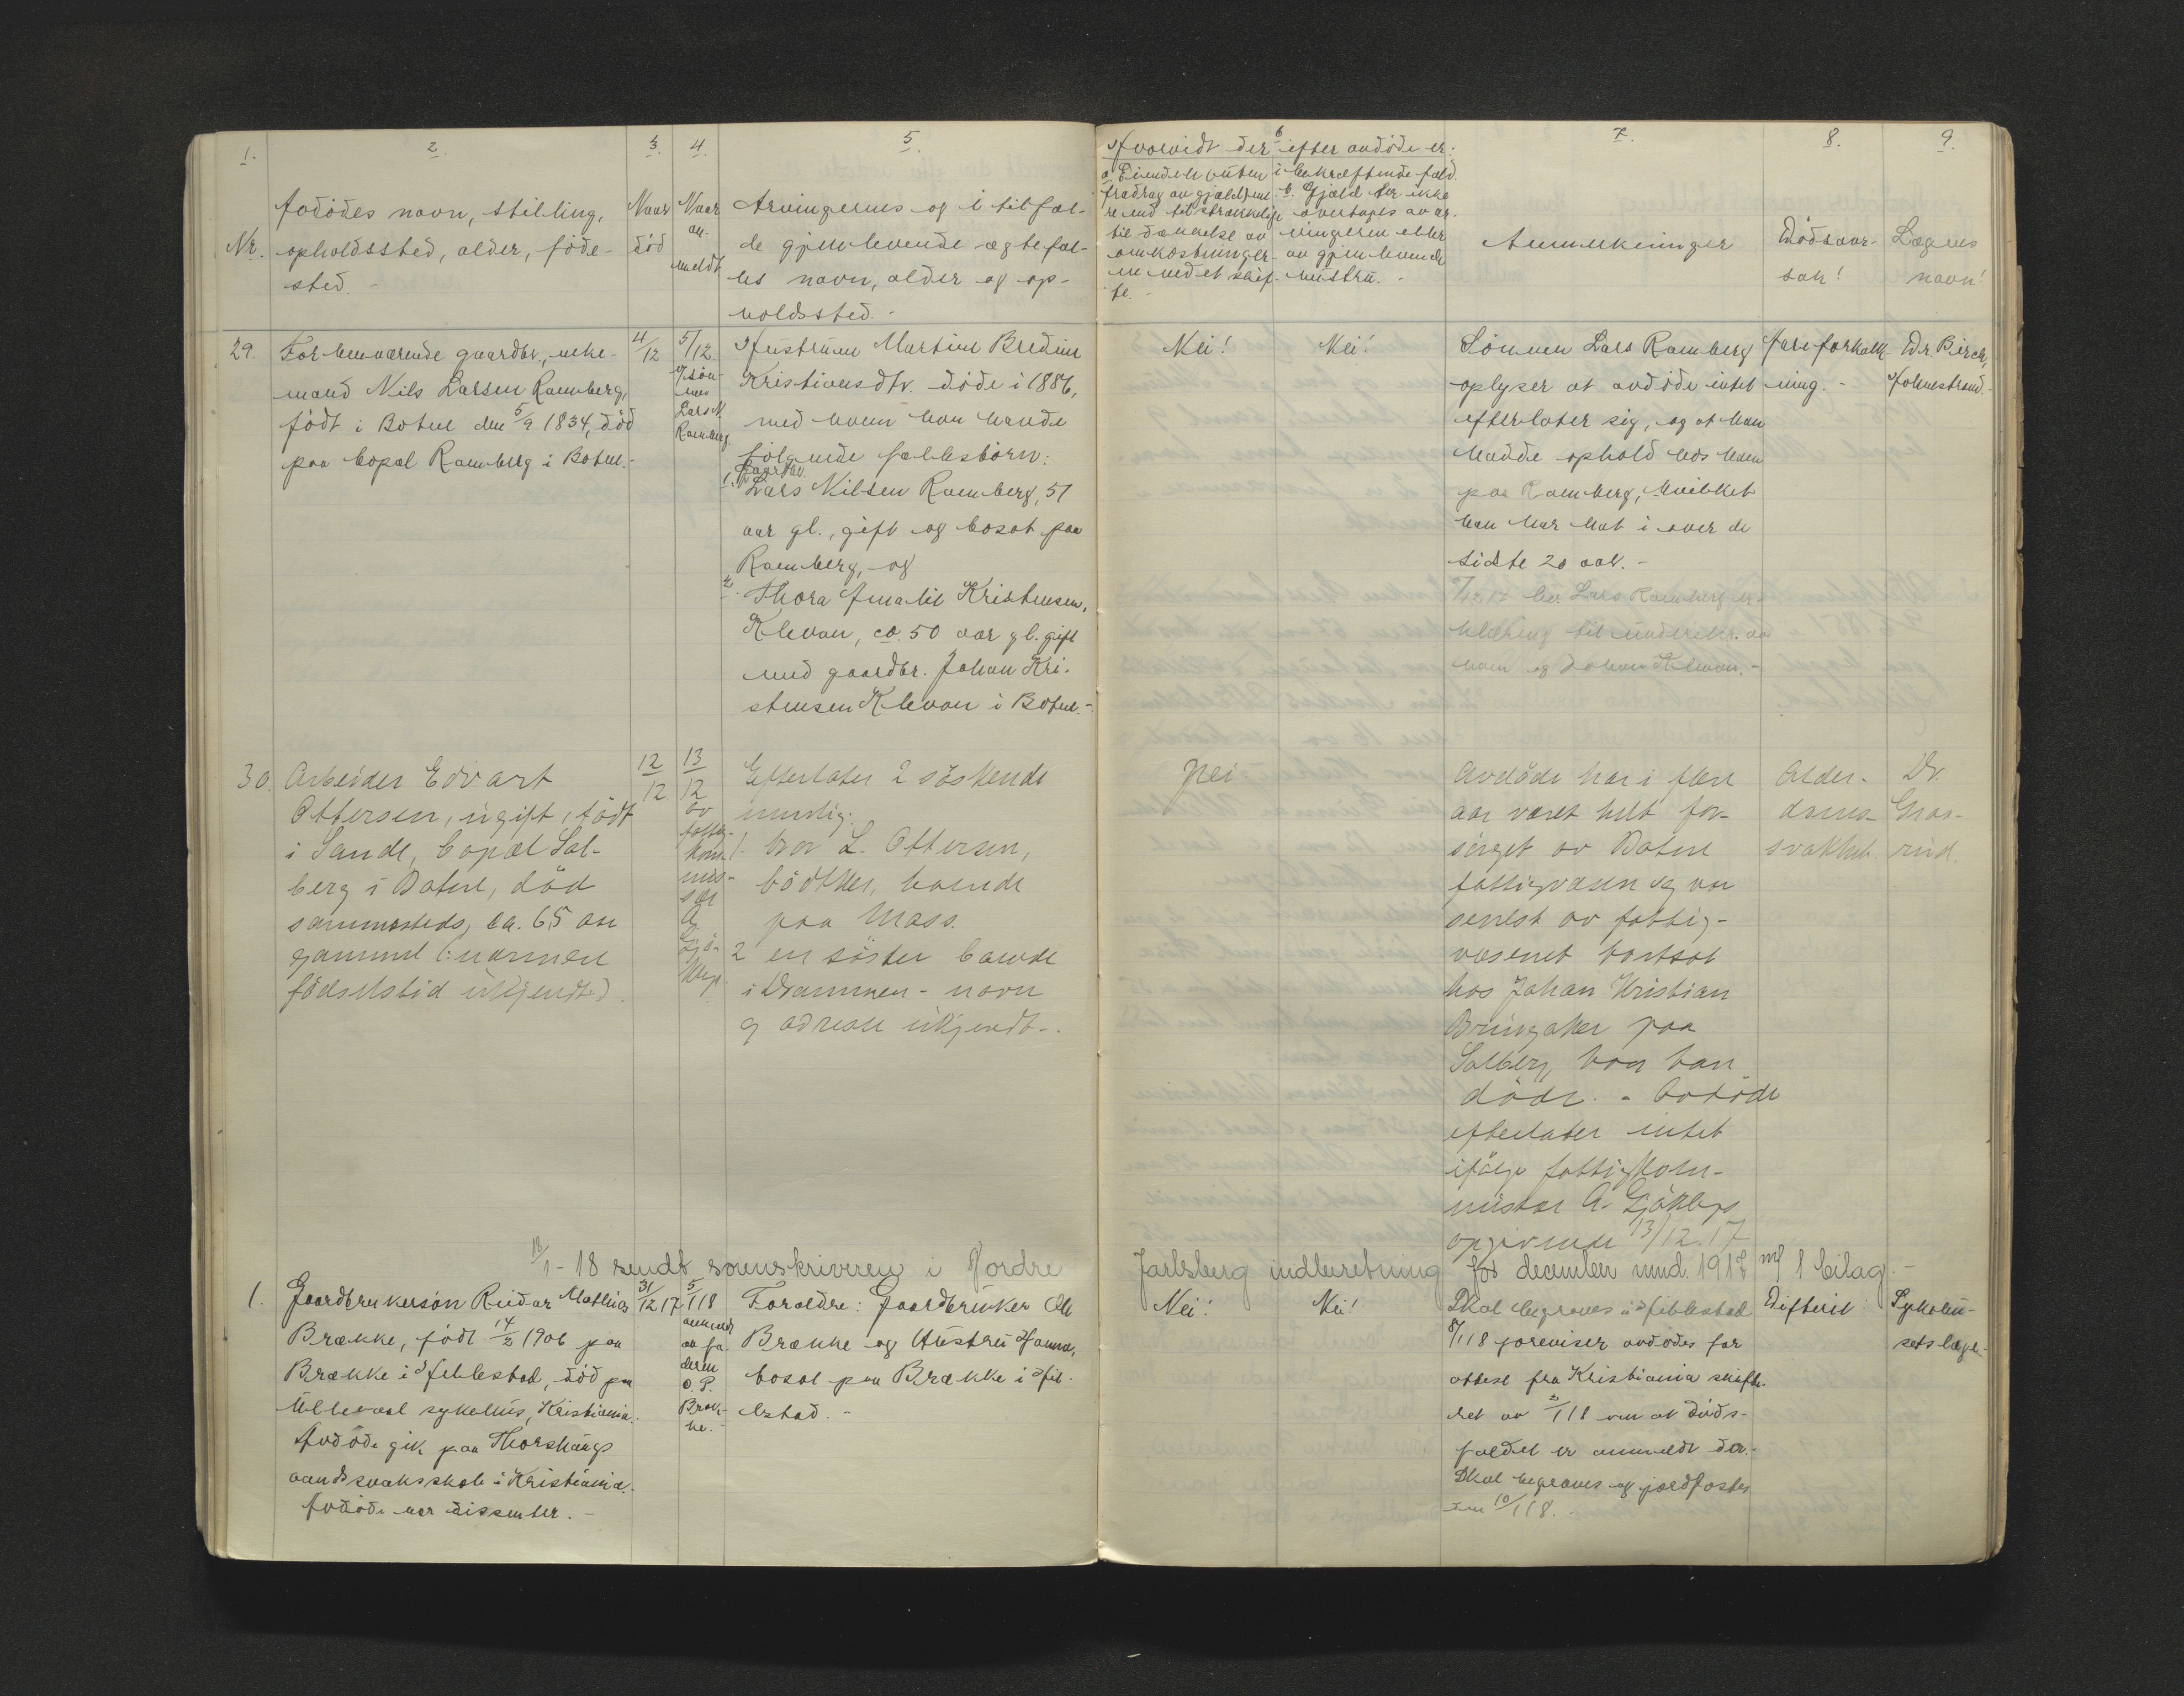 1.
2.
3.
4.
5.
6
7.
8.
9.
Nr.
Avdödes navn, stilling,
opholdssted, alder, föde-
sted. -
Naar
död
Naar
an-
meldt
Arvingernes og i tilfæl-
de gjenlevende ægtefæl-
les navn, alder og op-
holdssted. -
Hvorvidt der efter avdöde er:
a Eiendele uten
fradrag av gjælden
til dækkelse av
omkostninger-
ne ved et skif-
te. -
i bekræftende fald.
b. Gjæld der ikke
overtages av ar-
vingerne eller
av gjenlevende
hustru. -
Anmerkninger
Dödsaar-
sak!
Lægens
navn!
29.
Forhenværende gaardbr., enke-
mand Nils Larsen Ramberg,
födt i Botne den 5/9 1834, död
paa bopæl Ramberg i Botne.-
4/12
5/12.
av sön-
nen
Lars N.
Ramberg.
Hustruen Martine Bredine
Kristiansdtr. döde i 1886,
med hvem han havde
fölgende fællesbörn:
gaardbr.
1. Lars Nilsen Ramberg, 51
aar gl., gift og bosat paa
Ramberg, og
2. Thora Amalie Kristensen,
Klevan, ca. 50 aar gl. gift
med gaardbr. Johan Kri-
stensen Klevan i Botne.-
Nei!
Nei!
Sönnen Lars Ramberg
oplyser at avdöde intet
efterlater sig, og at han
hadde ophold hos ham
paa Ramberg, hvilket
han har hat i over de
sidste 20 aar. -
Lars Ramberg er-
klæring til underskr. av
ham og Johan Klevan. -
Areforkalk-
ning. -
Dr. Birch,
Holmestrand.
30.
Arbeider Edvart
Ottersen, ugift, födt
i Sande, bopæl Sol-
berg i Botne, död
sammesteds, ca. 65 aar
gammel (: nærmere
födselstid ukjendt).
12/12.
13/12
av
fattig-
kom-
mis-
sær
A.
Gjö-
klep.
Efterlater 2 söskende
nemlig:
1. bror L. Ottersen,
bödtker, boende
paa Moss.
2 en söster boende
i Drammen - navn
og adresse ukjendt -.
Nei
Avdöde har i flere
aar været helt for-
sörget av Botne
fattigvæsen og var
senest av fattig-
væsenet bortsat
hos Johan Kristian
Bringaker paa
Solberg, hvor han
döde. - Avdöde
efterlater intet
ifölge fattigkom-
missær A. Gjökleps
opgivende 13/12.17
Alder-
doms-
svakhet.
Dr.
Graa-
rud.
18/1-18 sendt sorenskriveren i Nordre Jarlsberg indberetning for december mnd. 1917 m/ 1 bilag. -
1.
Gaardbrukersön Reidar Mathias
Brække, födt 14/2 1906 paa
Brække i Hillestad, död paa
Ullevaal sykehus, Kristiania.
Avdöde gik paa Thorshaugs
aandssvakeskole i Kristiania.
Avdöde var dissenter. -
31/12 17
5/1 18
anmeldt
av fa-
deren
O. P.
Bræk-
ke. -
Forældre: Gaardbruker Ole
Brække og Hustru Hanna,
bosat paa Brække i Hil-
lestad. -
Nei!
Nei!
Skal begraves i Hillestad
8/1 18 foreviser avdödes far
attest fra Kristiania skifte-
ret av 2/1 18 om at döds-
faldet er anmeldt der. -
Skal begraves og jordfæstes
den 10/1 18. -
Difteri!
Sykehu-
sets læge.